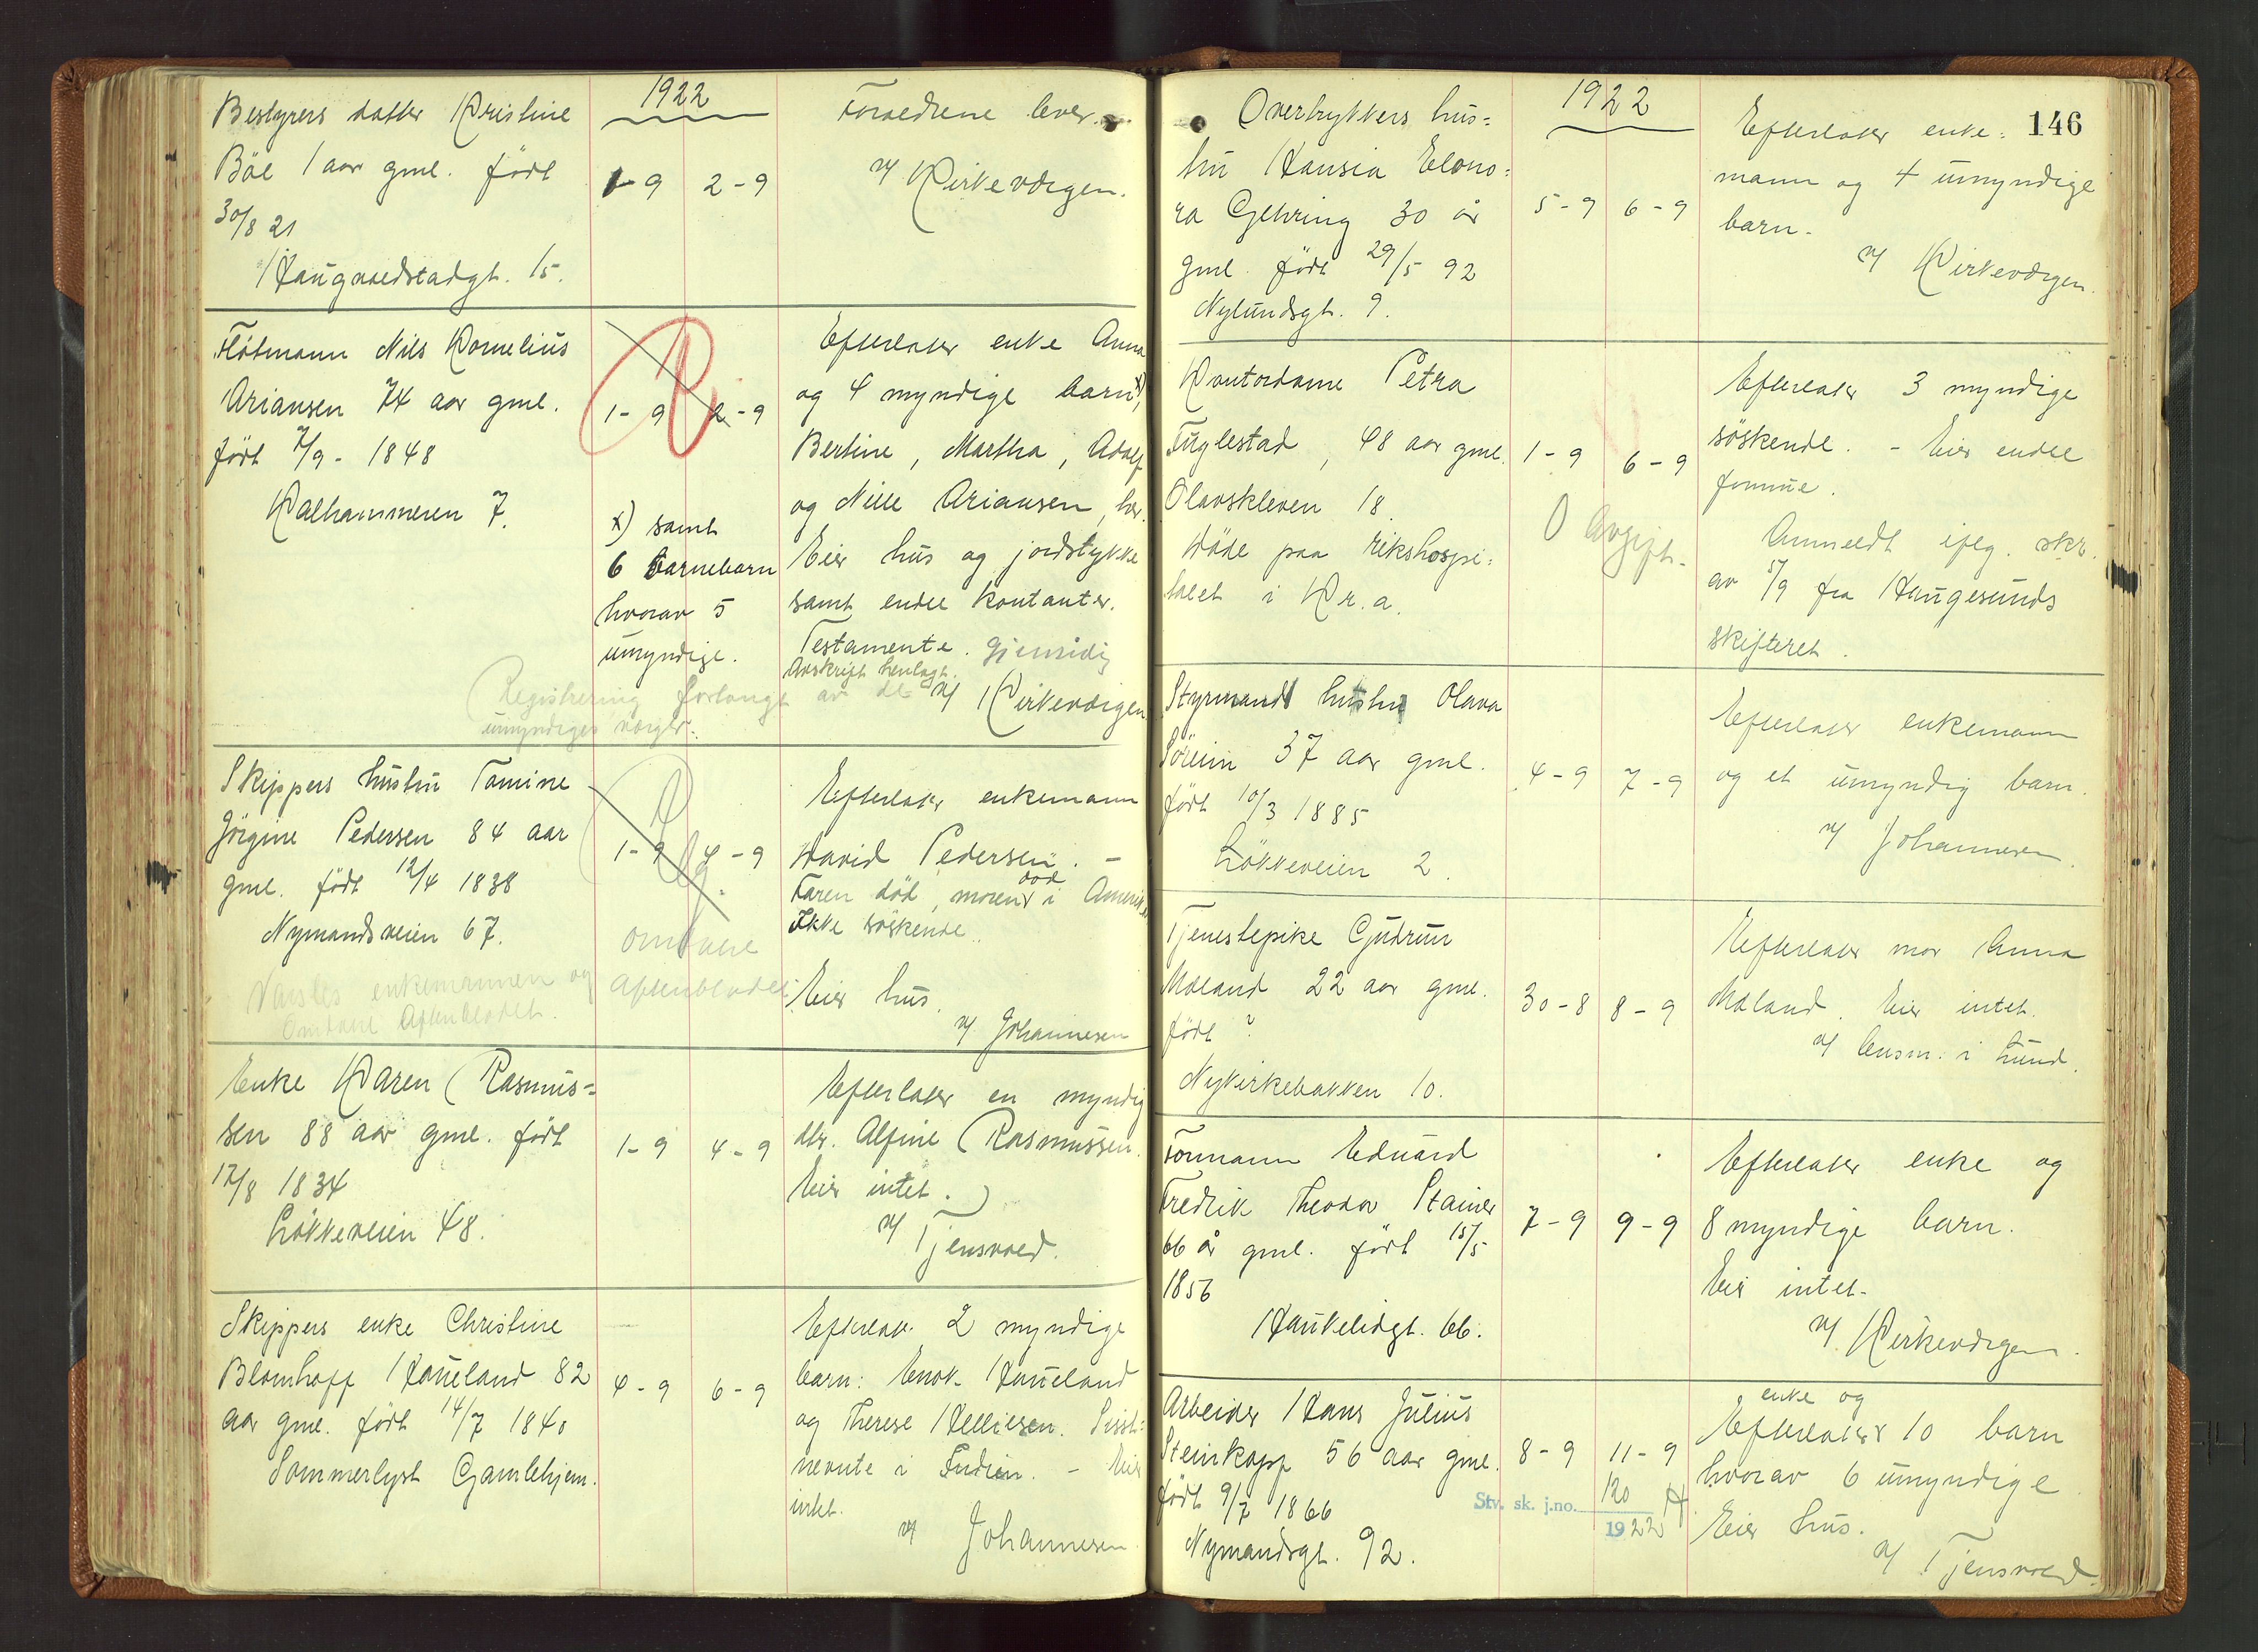 1922
Bestyrers datter Kristine
Böe 1 aar gml. født
30/8 21
Haugvaldstadgt. 15.
1-9 2-9
Foreldrene lever.
v/ Kirkevergen.
Flötmann Nils Kornelius
Ariansen 74 aar gml.
født 7/9 - 1848
Kalhammeren 7.
1-9 2-9
x) samt
6 barnebarn
hvorav 5
umyndige.
Efterlater enke Anna
og 4 myndige barn x),
Bertine, Martha, Adolf
og Nille Ariansen, her.
Eier hus og jordstykke
samt endel kontanter.
Testamente. gjensidig
Avskrift henlagt.
v/ Kirkevergen
Registrering forlangt av de
umyndiges verger.
Skippers hustru Tomine
Jörgine Pedersen 84 aar
gml. født 12/4 1838
Nymandsveien 67.
Varsles enkemannen og
Omtale Aftenbladet.
1-9 4-9
omtale
Aftenbladet
Efterlater enkemann
David Pedersen. -
Faren död, moren död i Amerika
Ikke söskende.
Eier hus.
v/ Johannesen
Enke Karen Rasmus=
sen 88 aar gml. født
17/8 1834
Lökkeveien 48.
1-9 4-9
Efterlater en myndig
dtr. Alfine Rasmussen.
Eier intet.
v/ Tjensvold.
Skippers enke Christine
Blomhoff Haueland 82
aar gml. født 14/7 1840
Sommerlyst Gamlehjem.
4-9 6-9
Efterlat. 2 myndige
barn: Enok Haueland
og Therese Helliesen. Sisst=
nevnte i Indien. - Eier
intet.
v/ Johannesen
146
1922
Overtrykkers hus=
tru Hansia Elono=
ra Gehring 30 år
gml. født 29/5 92
Nylundsgt. 9.
5-9 6-9
Efterlater enke=
mann og 4 umyndige
barn.
v/ Kirkevergen.
Kontordame Petra
Fuglestad, 48 aar gml.
Olavskleven 18.
Döde paa rikshospi=
talet i Kr.a.
1-9 6-9
0 Avgift.
Efterlater 3 myndige
söskende. - Eier endel
formue.
Anmeldt iflg. skr.
av 5/9 fra Haugesunds
skifteret.
Styrmands hustru Olava
Söreim 37 aar gml.
født 10/3 1885
Lökkeveien 2.
4-9 7-9
Efterlater enkemann
og et umyndig barn.
v/ Johannesen.
Tjenestepike Gudrun
Moland 22 aar gml.
født ?
Nykirkebakken 10.
30-8 8-9
Efterlater mor Anna
Moland. Eier intet.
v/ lensm. i Lund.
Formann Eduard
Fredrik Theodor Stainer
66 år gml. født 15/5
1856
Haukeligt. 66.
7-9 9-9
Efterlater enke og
8 myndige barn.
Eier intet.
v/ Kirkevergen.
Arbeider Hans Julius
Steinkopf 56 aar gml.
født 9/7 1866
Nymandsgt. 92.
8-9 11-9
Stv. sk. j.no. 120 A
1922
enke og
Efterlater 10 barn
hvorav 6 umyndige
Eier hus.
v/ Tjensvold.